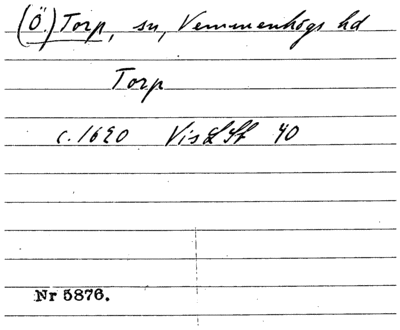 (Ö.) Torp, sn, Vemmenhögs hd
Torp
c. 1620 Vis L St 40
Nr 5876.